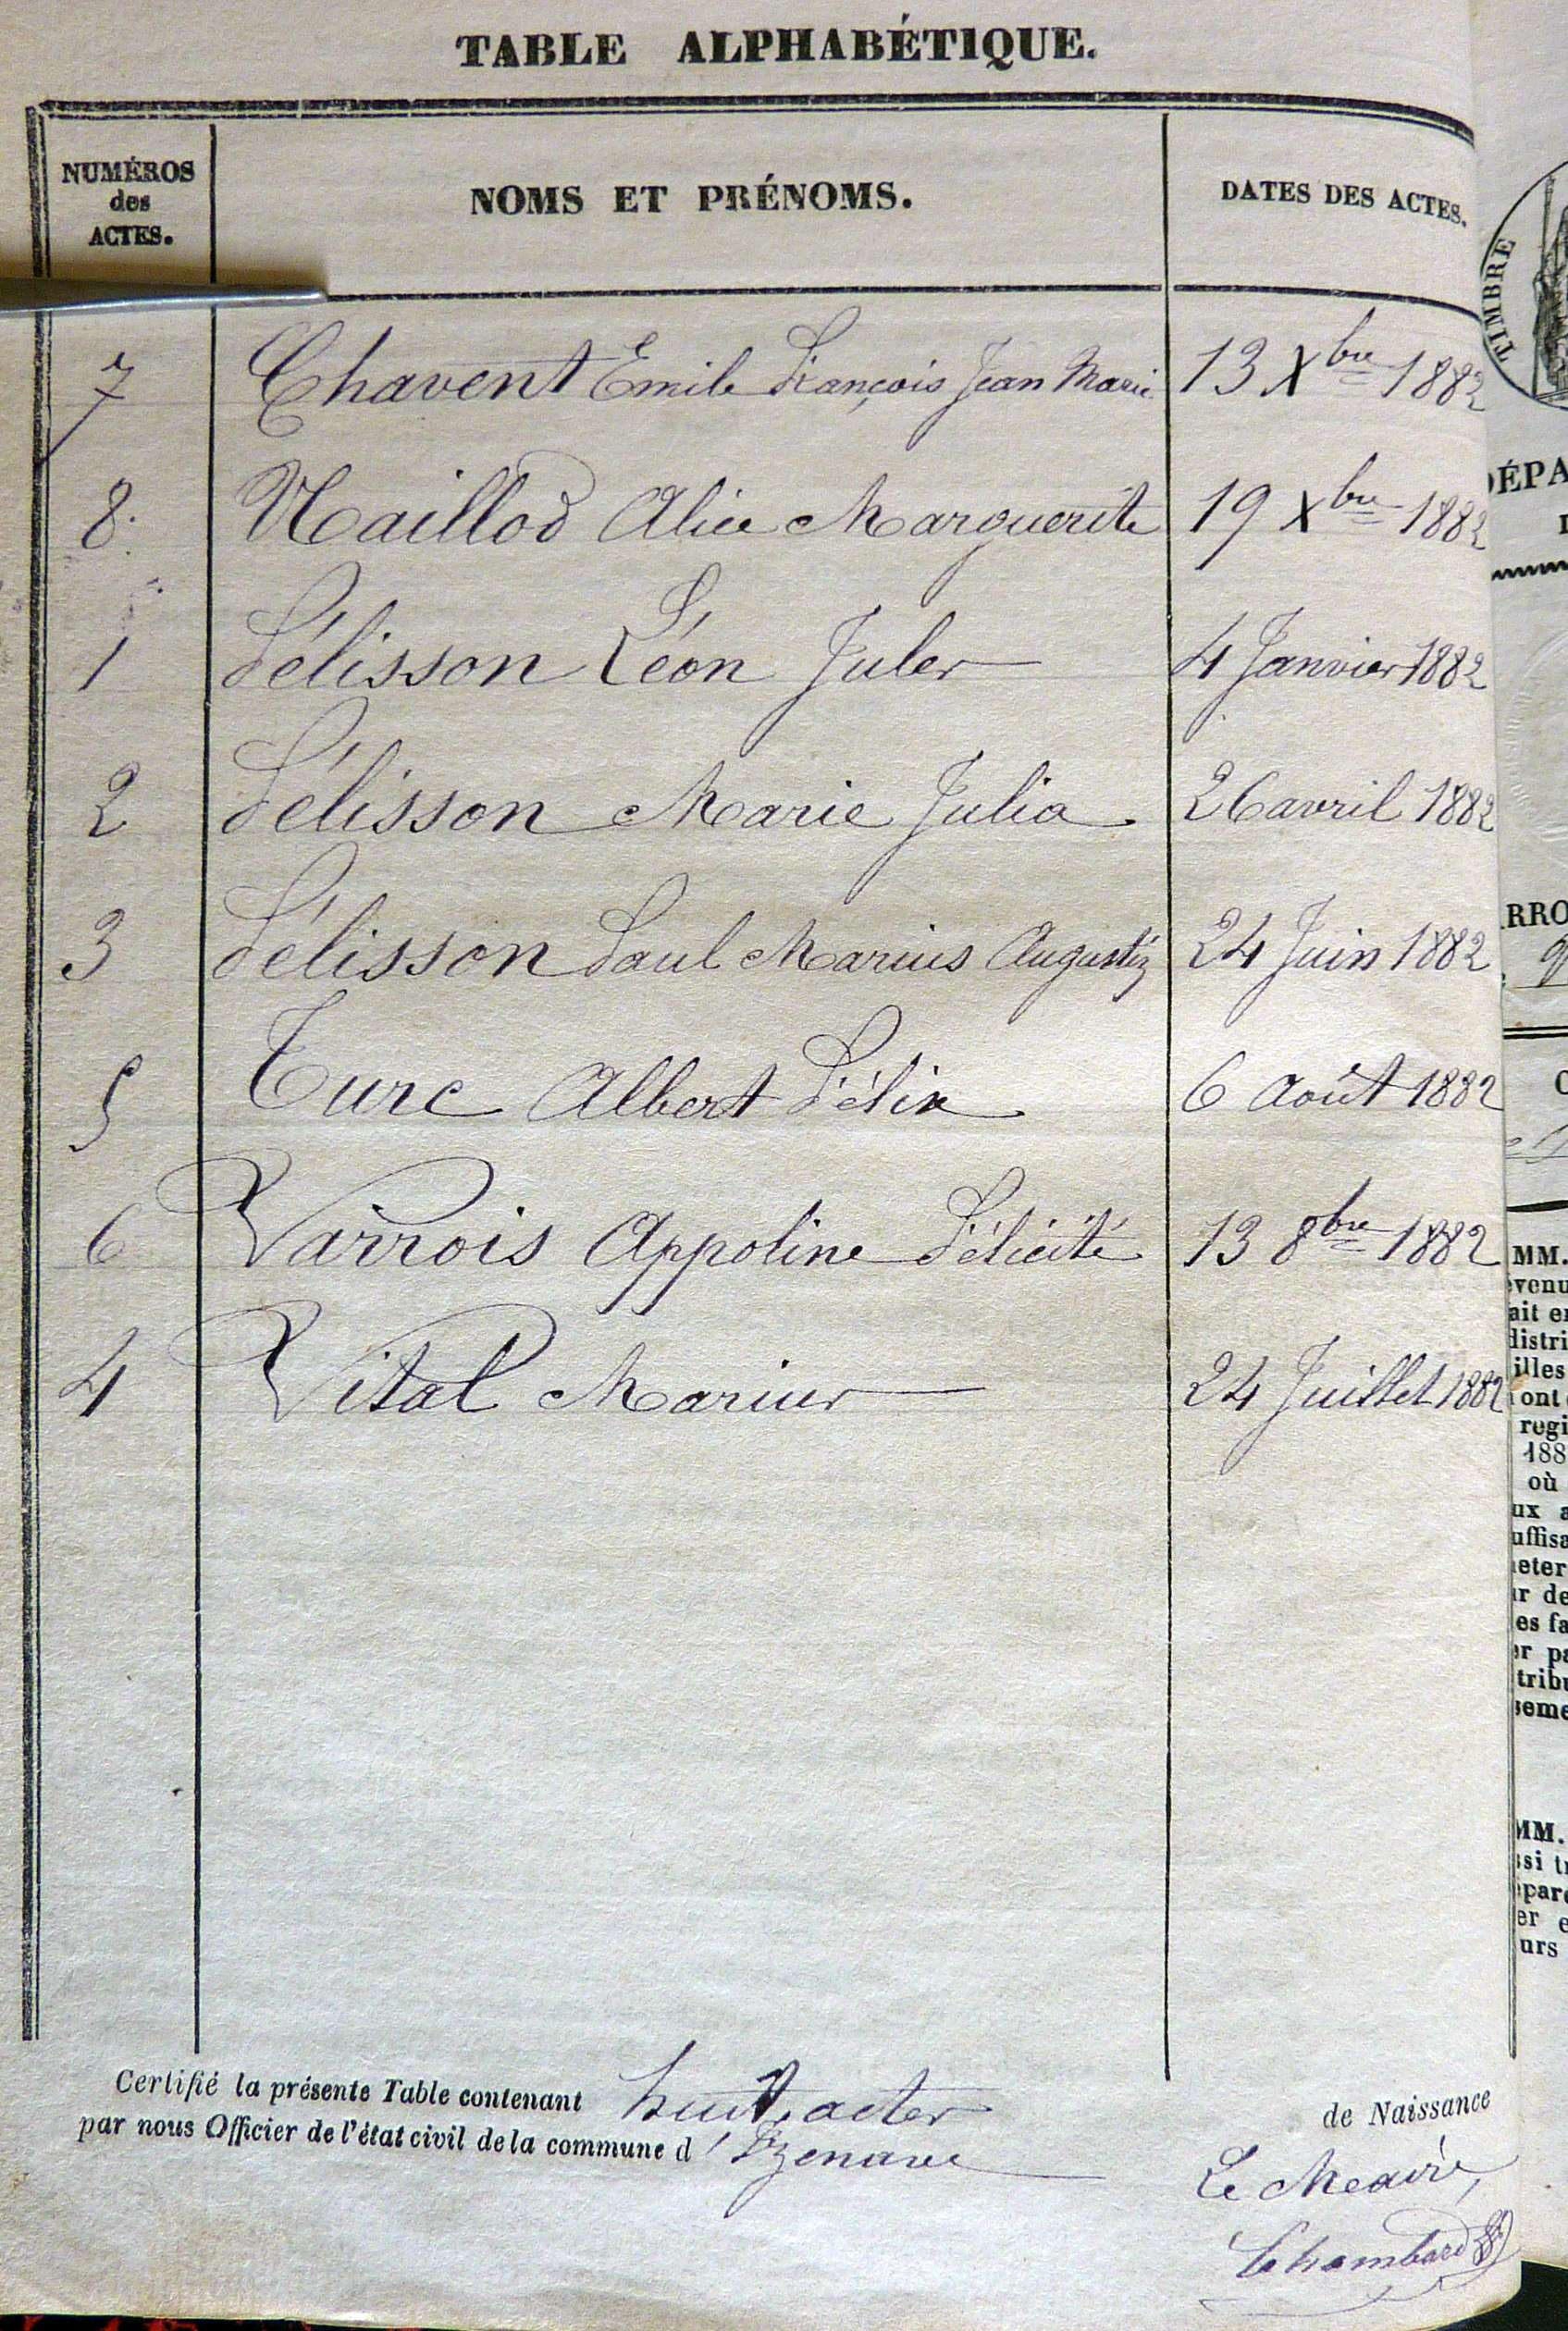 TABLE ALPHABÉTIQUE.
NUMÉROS
des
ACTES.
NOMS ET PRÉNOMS.
DATES DES ACTES.
7 Chavent Emile François Jean Marie 13 Xbre 1882
8. Maillod Alice Marguerite 19 Xbre 1882
1 Pélisson Léon Jules 4 Janvier 1882
2 Pélisson Marie Julia 26 avril 1882
3 Pélisson Paul Marius Augustin 24 Juin 1882
5 Turc Albert Félix 6 Août 1882
6 Varrois Appoline Félicité 13 8bre 1882
4 Vital Marius 24 Juillet 1882
Certifié la présente Table contenant huit actes de Naissance
par nous Officier de l'état civil de la commune d'Izenave
Le Maire,
Chambard
TIMBRE
DÉPA
RRO
MM.
venu
ait e
distri
illes
ont
regi
188
où
ux a
uffisa
eter
r de
es fa
er pa
tribu
seme
MM.
ssi t
épar
er e
urs